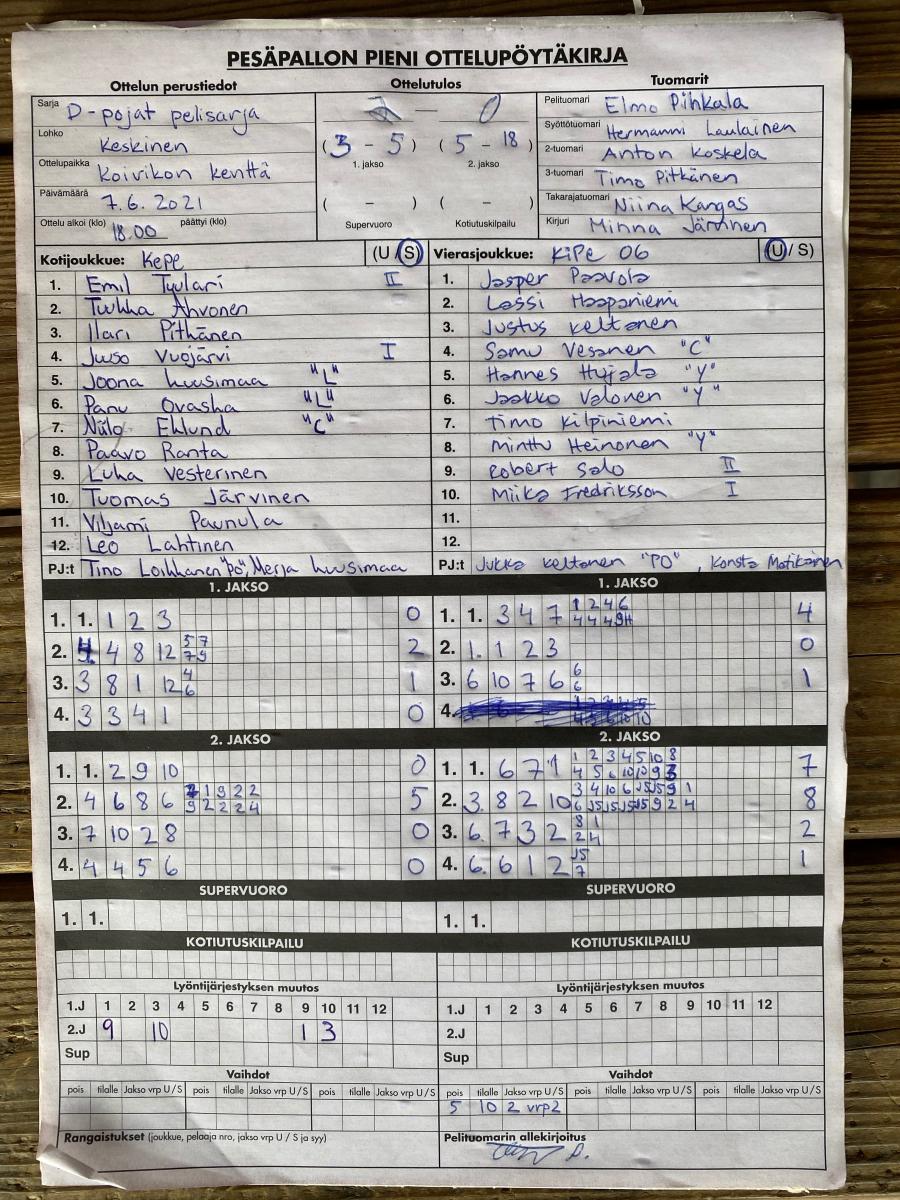 PESÄPALLON PIENI OTTELUPÖYTÄKIRJA
Ottelun perustiedot
Ottelutulos
Tuomarit
Sarja D-pojat pelisarja
Lohko Keskinen
Ottelupaikka Koivikon kenttä
Päivämäärä 7.6.2021
Ottelu alkoi (klo) 18.00 päättyi (klo)
— 0
(3 - 5) (5 - 18)
1. jakso 2. jakso
( – ) ( – )
Supervuoro Kotiutuskilpailu
Pelituomari Elmo Pihkala
Syöttötuomari Hermanni Laulainen
2-tuomari Anton Koskela
3-tuomari Timo Pitkänen
Takarajatuomari Niina Kangas
Kirjuri Minna Järvinen
Kotijoukkue: KePe (U / S)
1. Emil Tyulari II
2. Tuukka Ahvonen
3. Ilari Pitkänen
4. Juuso Vuojärvi I
5. Joona Kuusimaa "L"
6. Panu Ovaska "L"
7. Niilo Eklund "C"
8. Paavo Ranta
9. Luka Vesterinen
10. Tuomas Järvinen
11. Viljami Paunula
12. Leo Lahtinen
PJ:t Tino Loikkanen "PO", Merja Kuusimaa
Vierasjoukkue: KiPe 06 (U / S)
1. Jasper Paavola
2. Lassi Haapaniemi
3. Justus Keltanen
4. Samu Vesanen "C"
5. Hannes Hujala "Y"
6. Jaakko Valonen "Y"
7. Timo Kilpiniemi
8. Minttu Heinonen "Y"
9. Robert Salo II
10. Miika Fredriksson I
11.
12.
PJ:t Jukka Keltanen "PO", Konsta Matikainen
1. JAKSO
1. 1. 1 2 3 0
2. 4. 4 8 12 5 7 2
7 9
3. 3 8 1 12 4 1
6
4. 3 3 4 1 0
1. JAKSO
1. 1. 3 4 7 1 2 4 6 4
4 4 4 9H
2. 1. 1 2 3 0
3. 6 10 7 6 6 1
6
4.
2. JAKSO
1. 1. 2 9 10 0
2. 4 6 8 6 1 9 2 2 5
9 2 2 2 4
3. 7 10 2 8 0
4. 4 4 5 6 0
2. JAKSO
1. 1. 6 7 1 1 2 3 4 5 10 8 7
4 5 6 10 10 9 3
2. 3. 8 2 10 3 4 10 6 J5 J5 9 1 8
6 J5 J5 J5 J5 9 2 4
3. 6. 7 3 2 8 1 2
2 4
4. 6. 6 1 2 J5 1
7
SUPERVUORO
1. 1.
SUPERVUORO
1. 1.
KOTIUTUSKILPAILU
KOTIUTUSKILPAILU
Lyöntijärjestyksen muutos
1.J 1 2 3 4 5 6 7 8 9 10 11 12
2.J 9 10 1 3
Sup
Lyöntijärjestyksen muutos
1.J 1 2 3 4 5 6 7 8 9 10 11 12
2.J
Sup
Vaihdot
pois tilalle Jakso vrp U / S pois tilalle Jakso vrp U / S pois tilalle Jakso vrp U / S
Vaihdot
pois tilalle Jakso vrp U / S pois tilalle Jakso vrp U / S pois tilalle Jakso vrp U / S
5 10 2 vrp2
Rangaistukset (joukkue, pelaaja nro, jakso vrp U / S ja syy)
Pelituomarin allekirjoitus